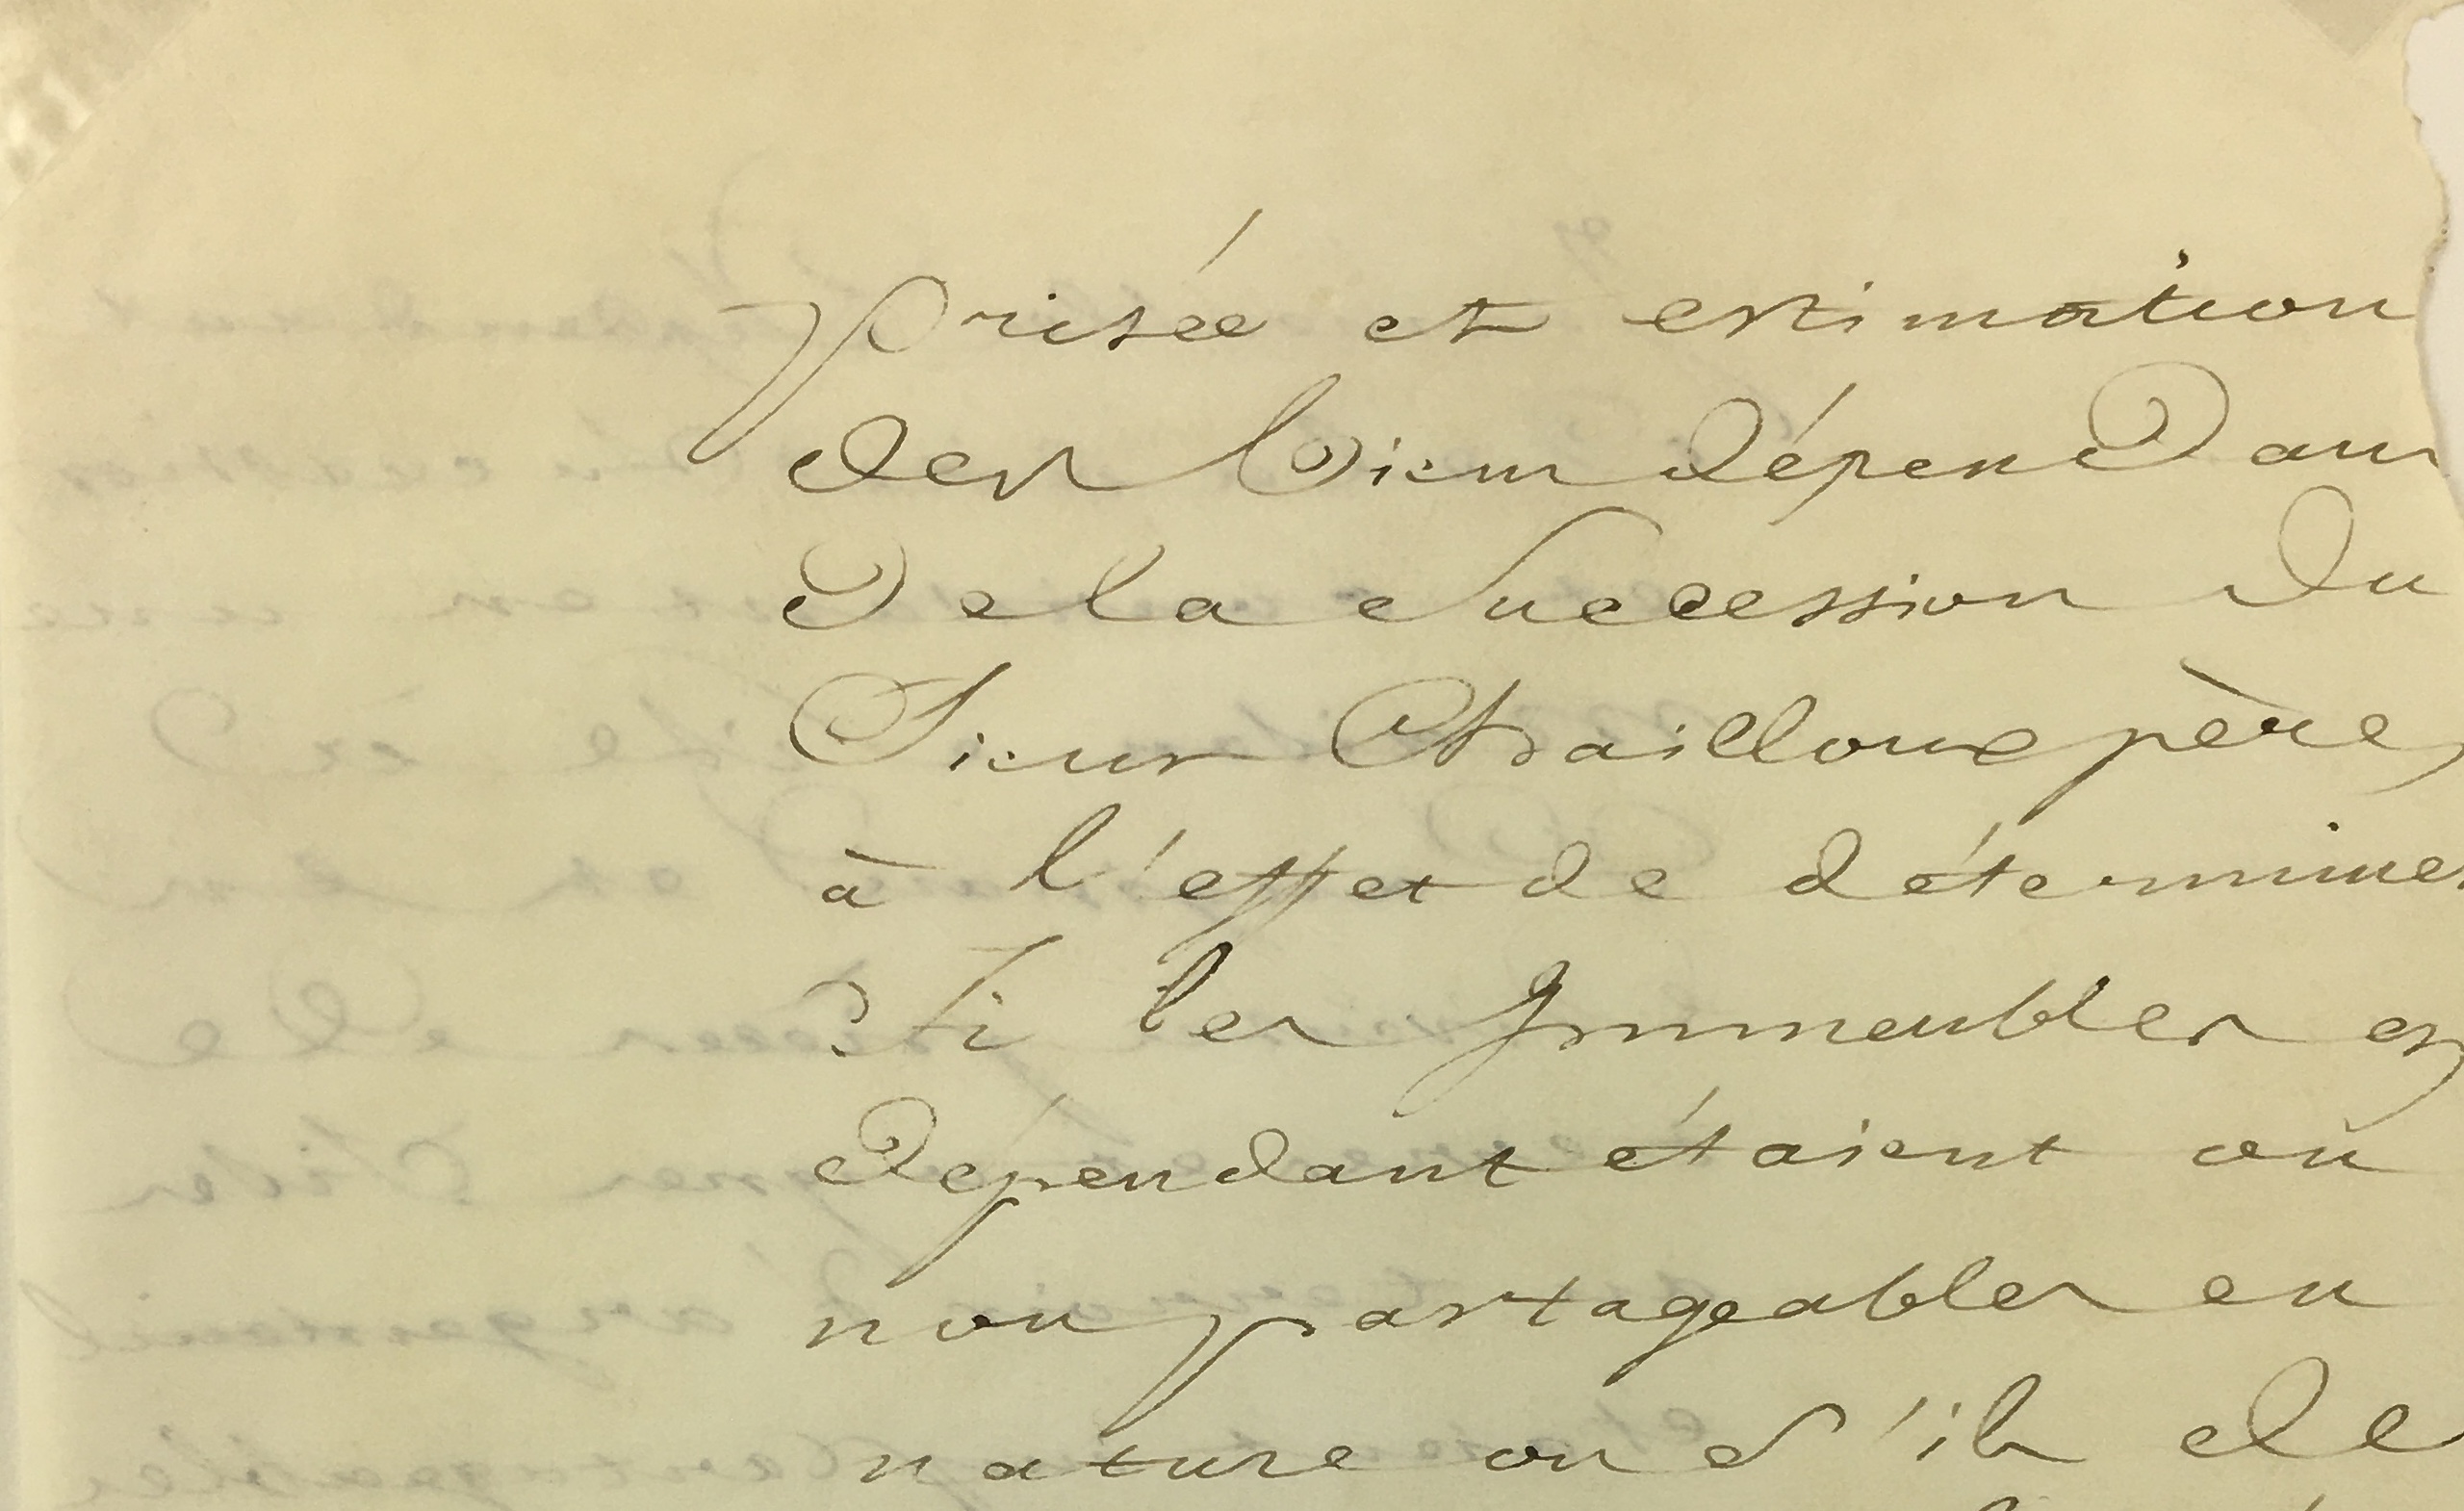 prisée et estimation
des biens dépendans
De la Succession du
Sieur Chailloux père,
à l'effet de déterminer
Si les Immeubles en
Dépendant étaient ou
non partageables en
nature ou S'ils de